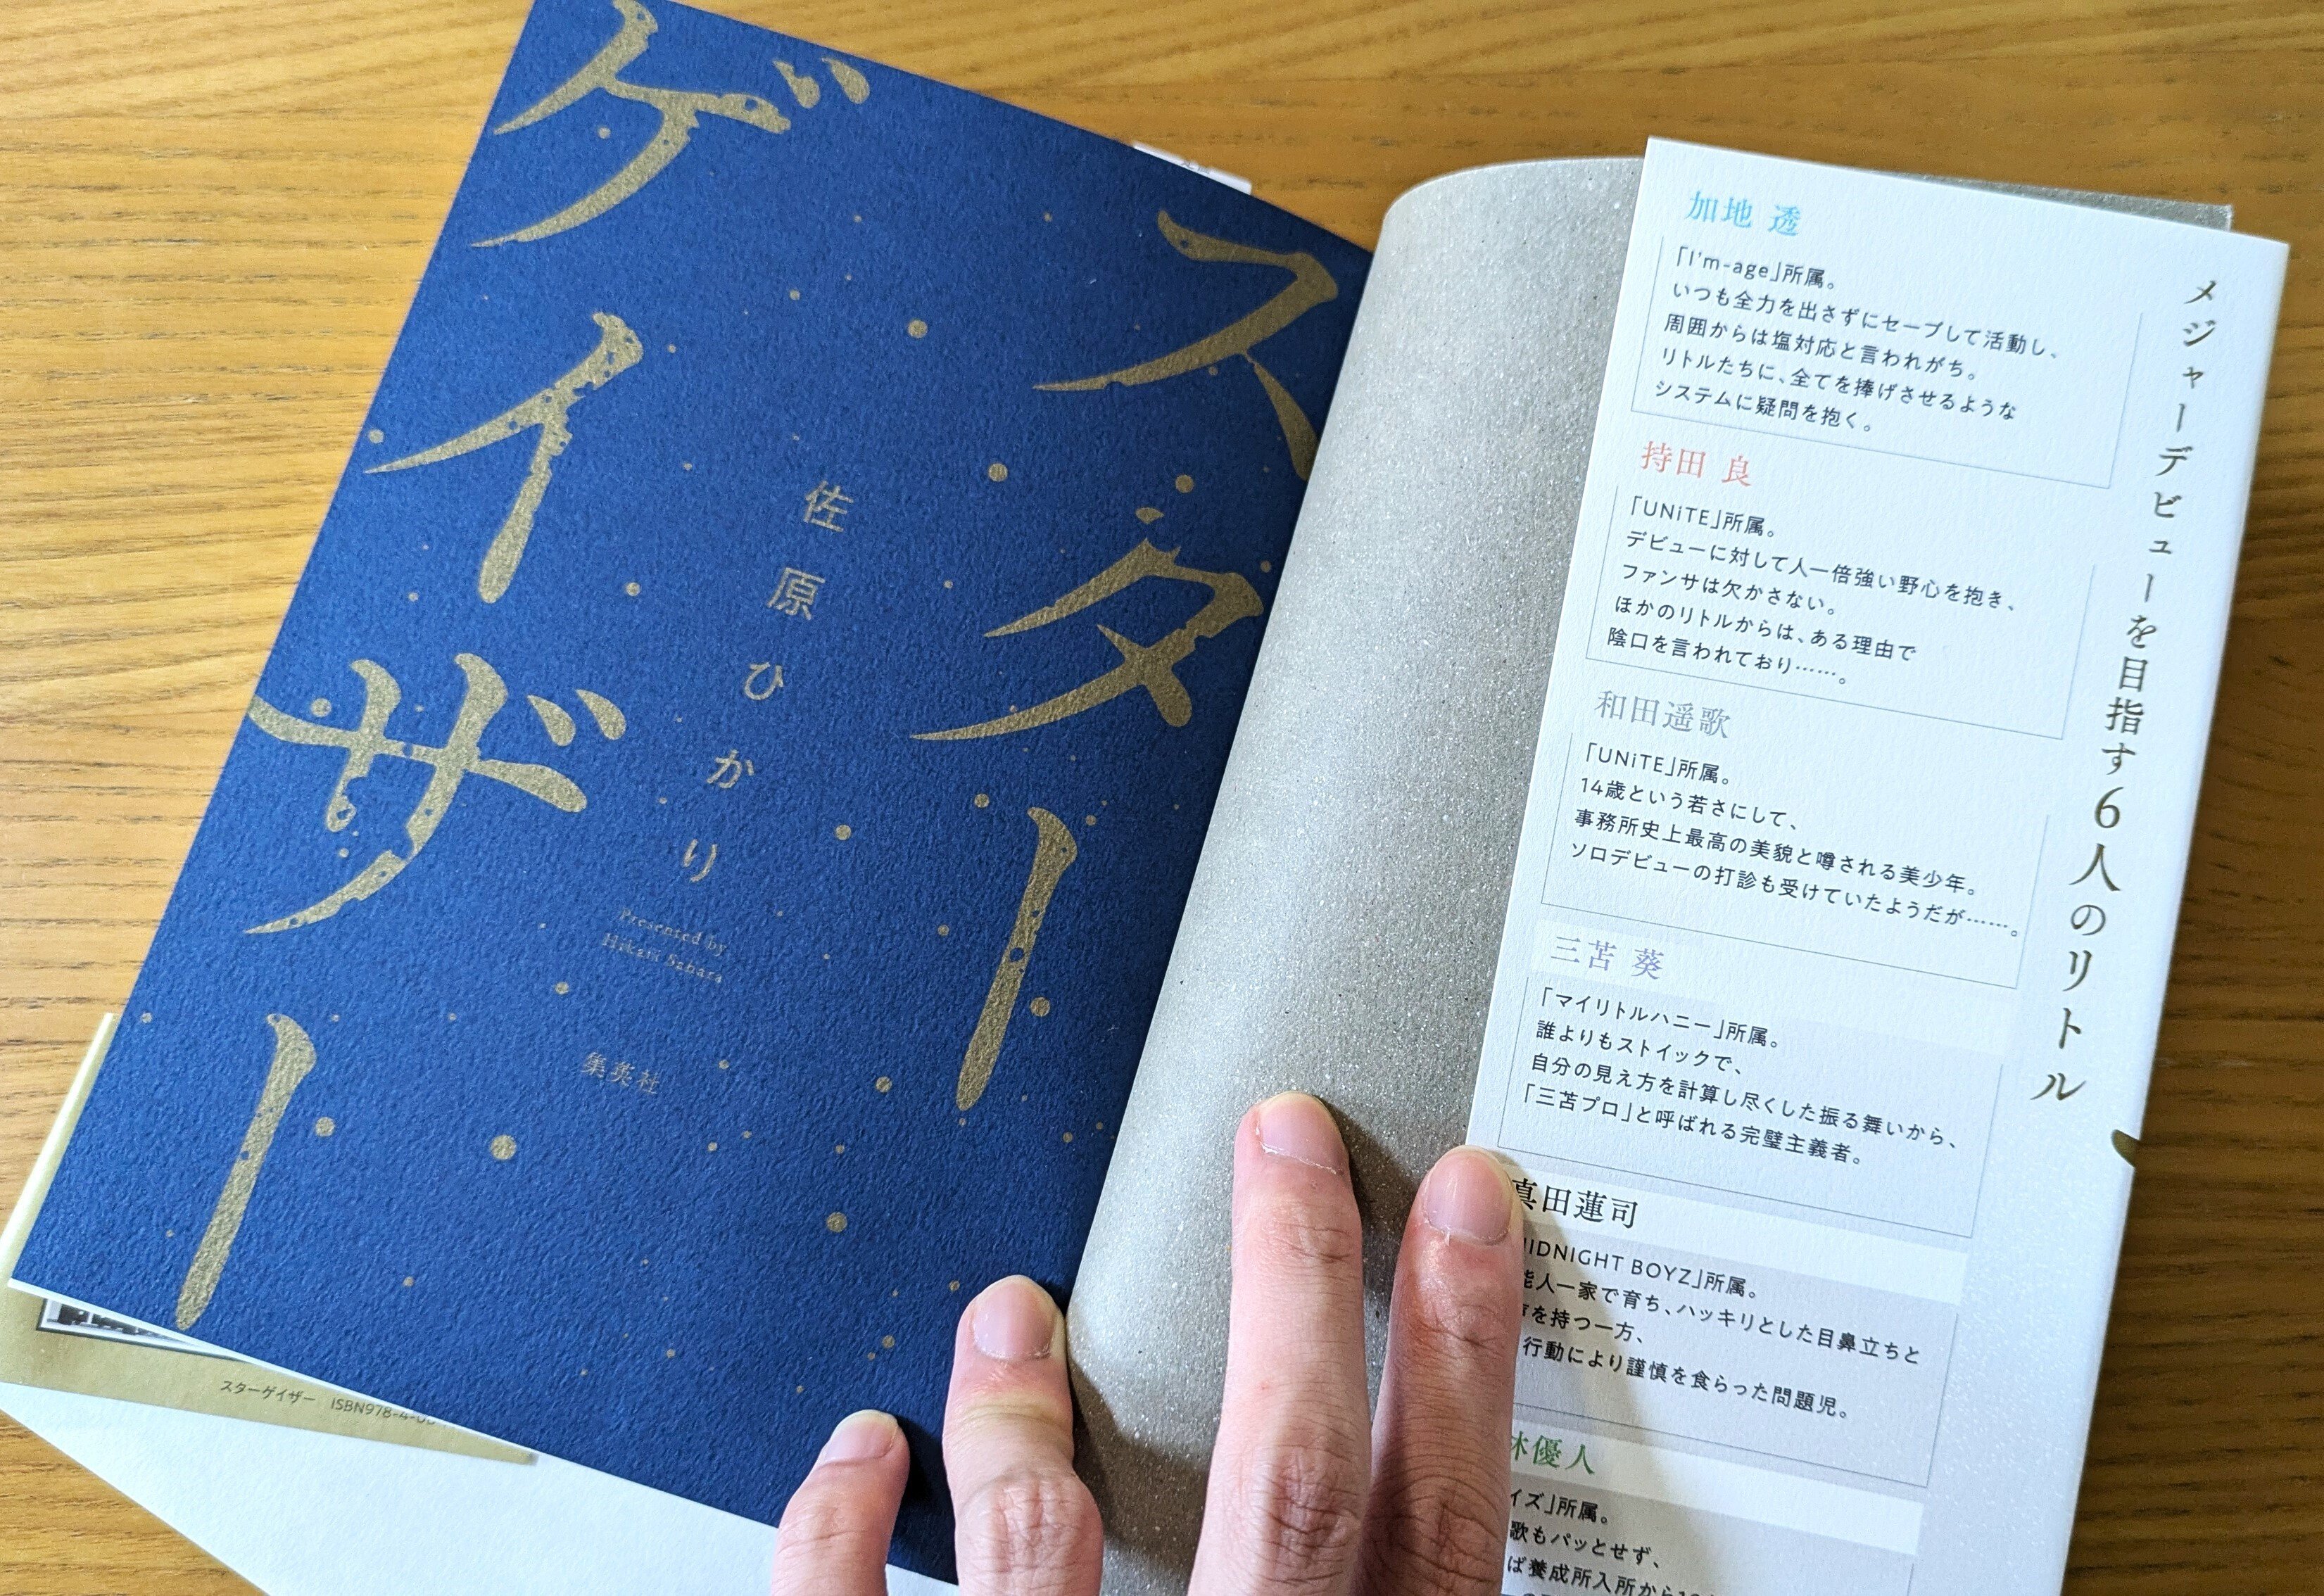 スター
ゲイザー
佐原ひかり
Presented by
Hikari Sahara
集英社
スターゲイザー ISBN978-4-0
メジャーデビューを目指す6人のリトル
加地 透
「I'm-age」所属。
いつも全力を出さずにセーブして活動し、
周囲からは塩対応と言われがち。
リトルたちに、全てを捧げさせるような
システムに疑問を抱く。
持田 良
「UNiTE」所属。
デビューに対して人一倍強い野心を抱き、
ファンサは欠かさない。
ほかのリトルからは、ある理由で
陰口を言われており……。
和田遥歌
「UNiTE」所属。
14歳という若さにして、
事務所史上最高の美貌と噂される美少年。
ソロデビューの打診も受けていたようだが……。
三苫 葵
「マイリトルハニー」所属。
誰よりもストイックで、
自分の見え方を計算し尽くした振る舞いから、
「三苫プロ」と呼ばれる完璧主義者。
真田蓮司
IDNIGHT BOYZ」所属。
能人一家で育ち、ハッキリとした目鼻立ちと
を持つ一方、
行動により謹慎を食らった問題児。
林優人
イズ」所属。
歌もパッとせず、
ば養成所入所から